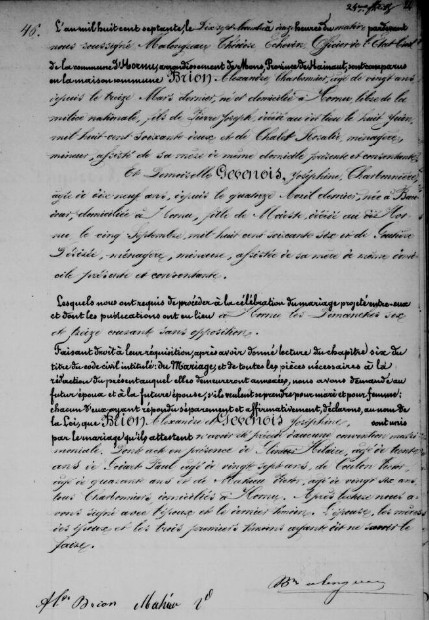 46.
L'an mil huit cent septante, le Dix sept à onze heures du matin par devant
nous soussigné Echevin Officier de l'Etat Civil
de la commune d'Hornu, arrondissement de Mons, Province de Hainaut, ont comparus
en la maison commune Brion Alexandre Charbonnier, âgé de vingt ans
depuis le treize Mars dernier, né et domicilié à Hornu libre de la
milice nationale, fils de Pierre Joseph, décédé au dit lieu le huit Juin
mil huit cent soixante deux et de Rosalie, ménagère,
mineur, assisté de sa mère de même domicile présente et consentante
Et Demoiselle Degenois, Joséphine, Charbonnière,
âgée de dix neuf ans, depuis le quatorze Avril dernier, née à
domiciliée à Hornu, fille de décédé au dit Hor-
nu le cinq Septembre, mil huit cent soixante six et de
ménagère, mineure, assistée de sa mère de même domi-
cile présente et consentante.
Lesquels nous ont requis de procéder à la célébration du mariage projeté entre eux
et dont les publications ont eu lieu à Hornu les Dimanches six
et treize courant sans opposition.
Faisant droit à leur réquisition, après avoir donné lecture du chapitre six du
titre du code civil intitulé: du Mariage, et de toutes les pièces nécessaires à la
rédaction du présent auquel elles demeureront annexées, nous avons demandé au
futur époux et à la future épouse, s'ils veulent se prendre pour mari et pour femme:
chacun d'eux ayant répondu séparément et affirmativement, déclarons, au nom de
la Loi, que Brion Alexandre et Degenois Joséphine, sont unis
par le mariage qu'ils attestent n'avoir été précédé d'aucune convention matri-
moniale. Dont acte en présence de Hilaire, âgé de trente
ans de Paul âgé de vingt sept ans, de
âgé de quarante ans et de Mahieu âgé de vingt six ans,
tous Charbonniers domiciliés à Hornu. Après lecture nous a-
vons signé avec l'époux et le dernier témoin. L'épouse, les mères
des époux et les trois premiers témoins ayant dit ne savoir le
faire.
Alex Brion Mahieu